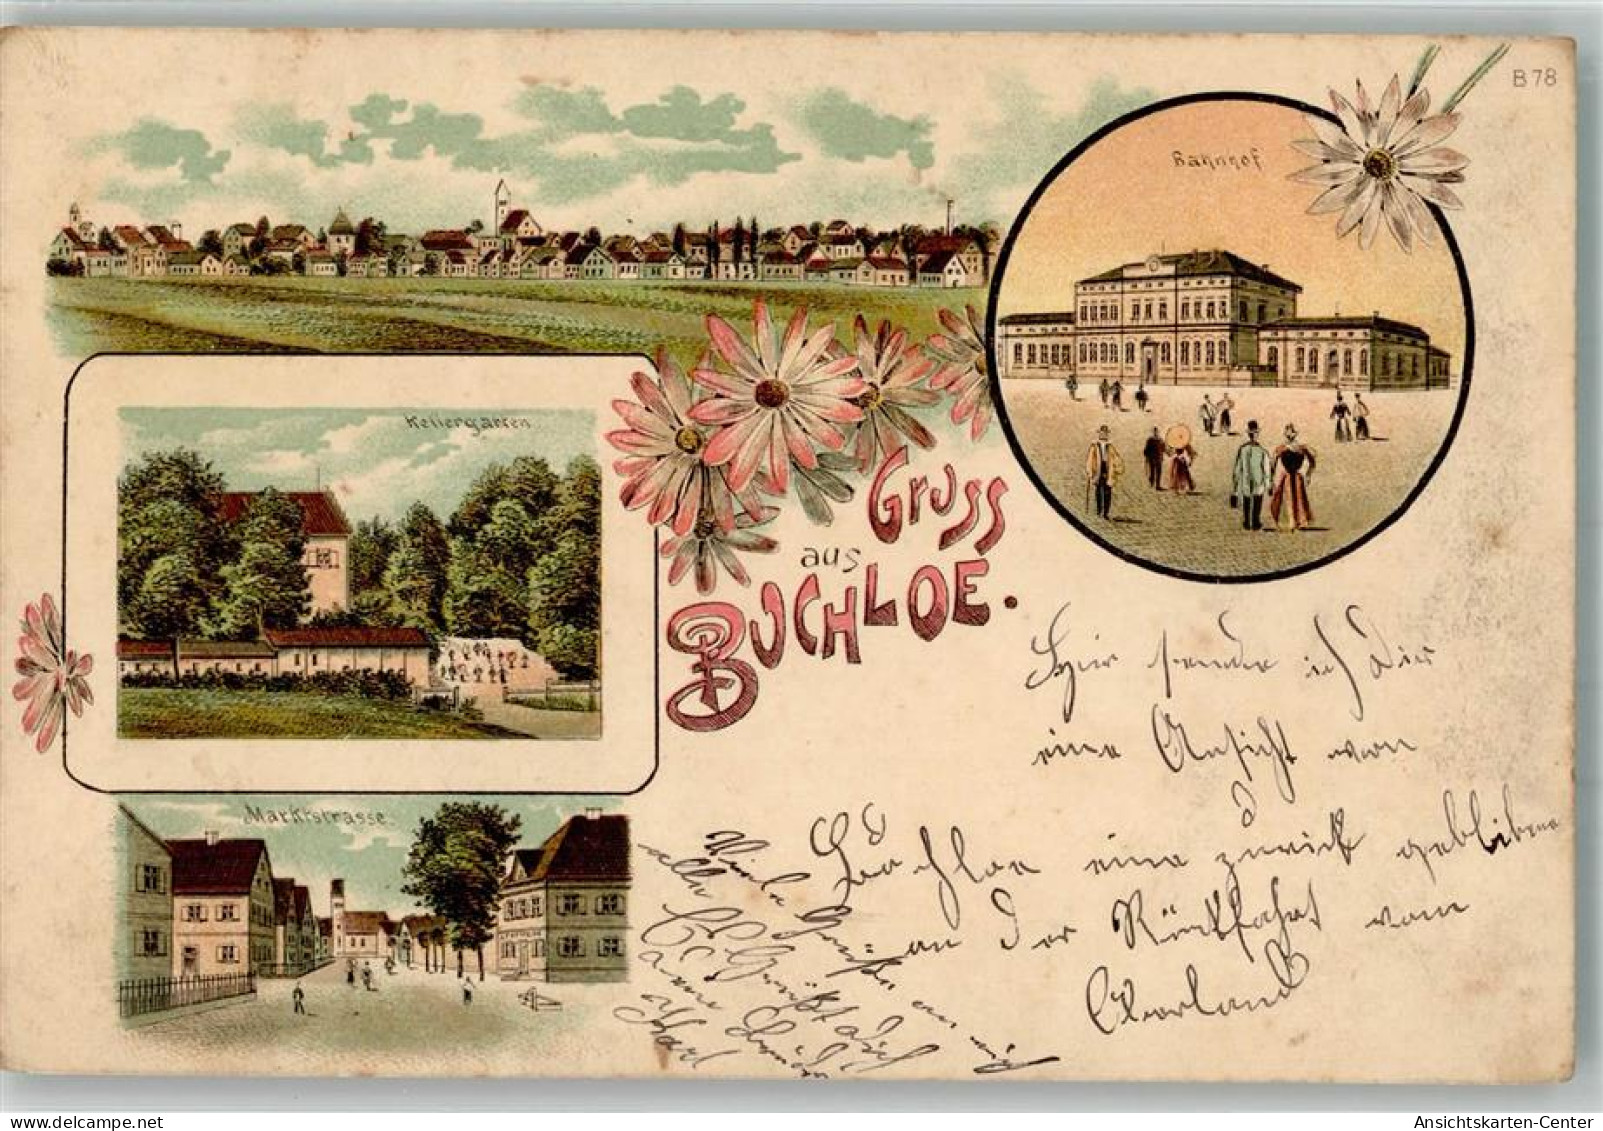 B 78
Bahnhof
Kellergarten
Gruss
aus
BUCHLOE.
Marktstrasse.
Hier sende ich Dir
eine Ansicht von
Buchloe eine zurück geblieben
an der Rückfahrt vom
Oberland
Viele Grüße an
alle
Es Grüßt Dich
Bruder
Karl
Ansichtskarten-Center